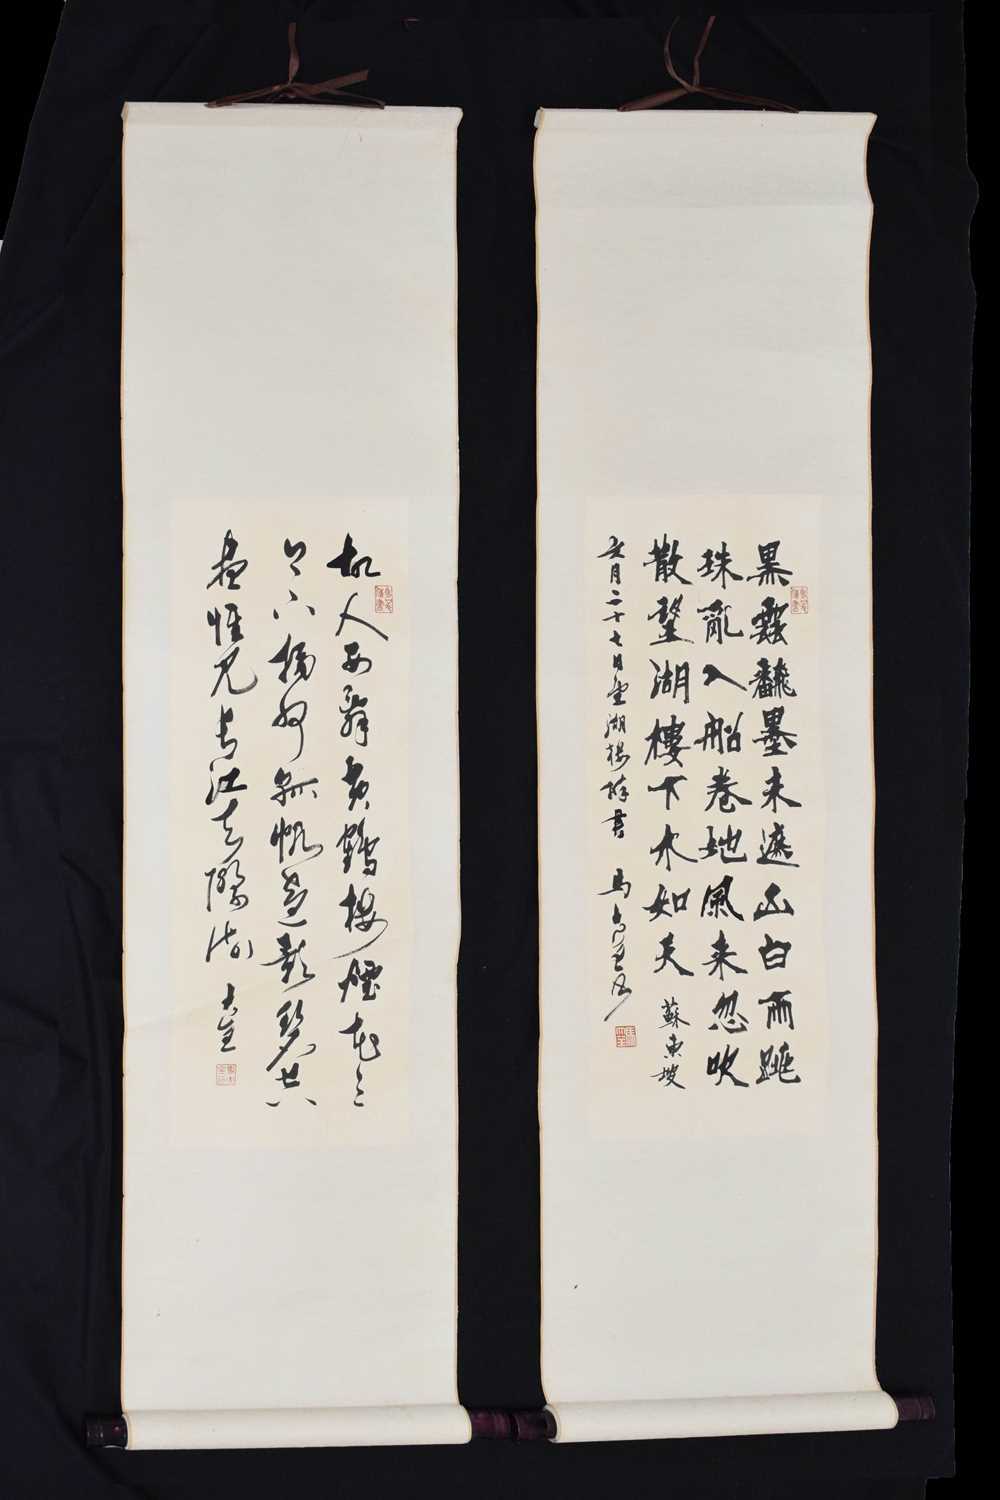 黑雲翻墨未遮山白雨跳
珠亂入船卷地風来忽吹
散望湖樓下水如天 蘇東坡
六月二十七日望湖楼醉書 馬
故人西辞黄鶴楼煙花三
月下揚州孤帆遠影碧空
盡惟見長江天際流